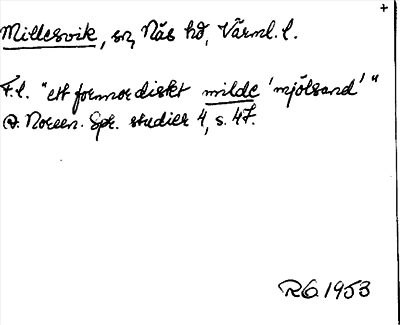 +
Millesvik, sn, Näs hd, Värml. l.
F.l. "ett fornnordiskt milde 'mjölsand'"
A. Noreen. Spr. studier 4, s. 47.
RG 1953